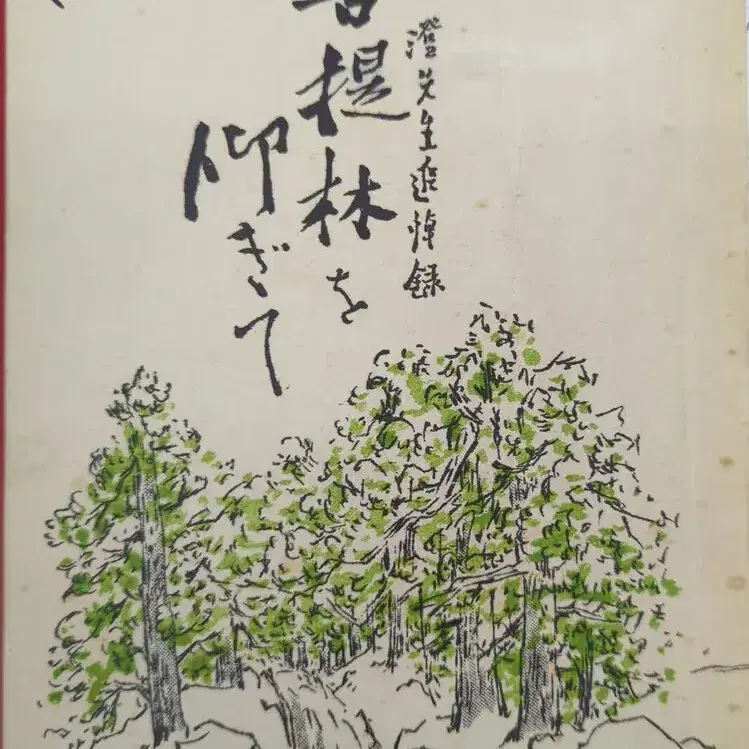 澄先生追悼録
菩提林を
仰ぎて